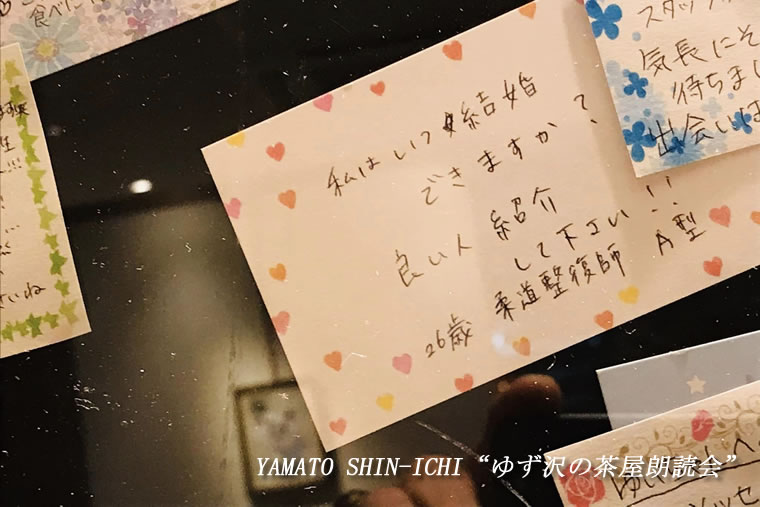 食べに
私はいつ結婚
できますか?
良い人 紹介
して下さい!!
26歳 柔道整復師 A型
スタッフ
気長にそ
待ちまし
出会いは
さいね
YAMATO SHIN-ICHI “ゆず沢の茶屋朗読会”